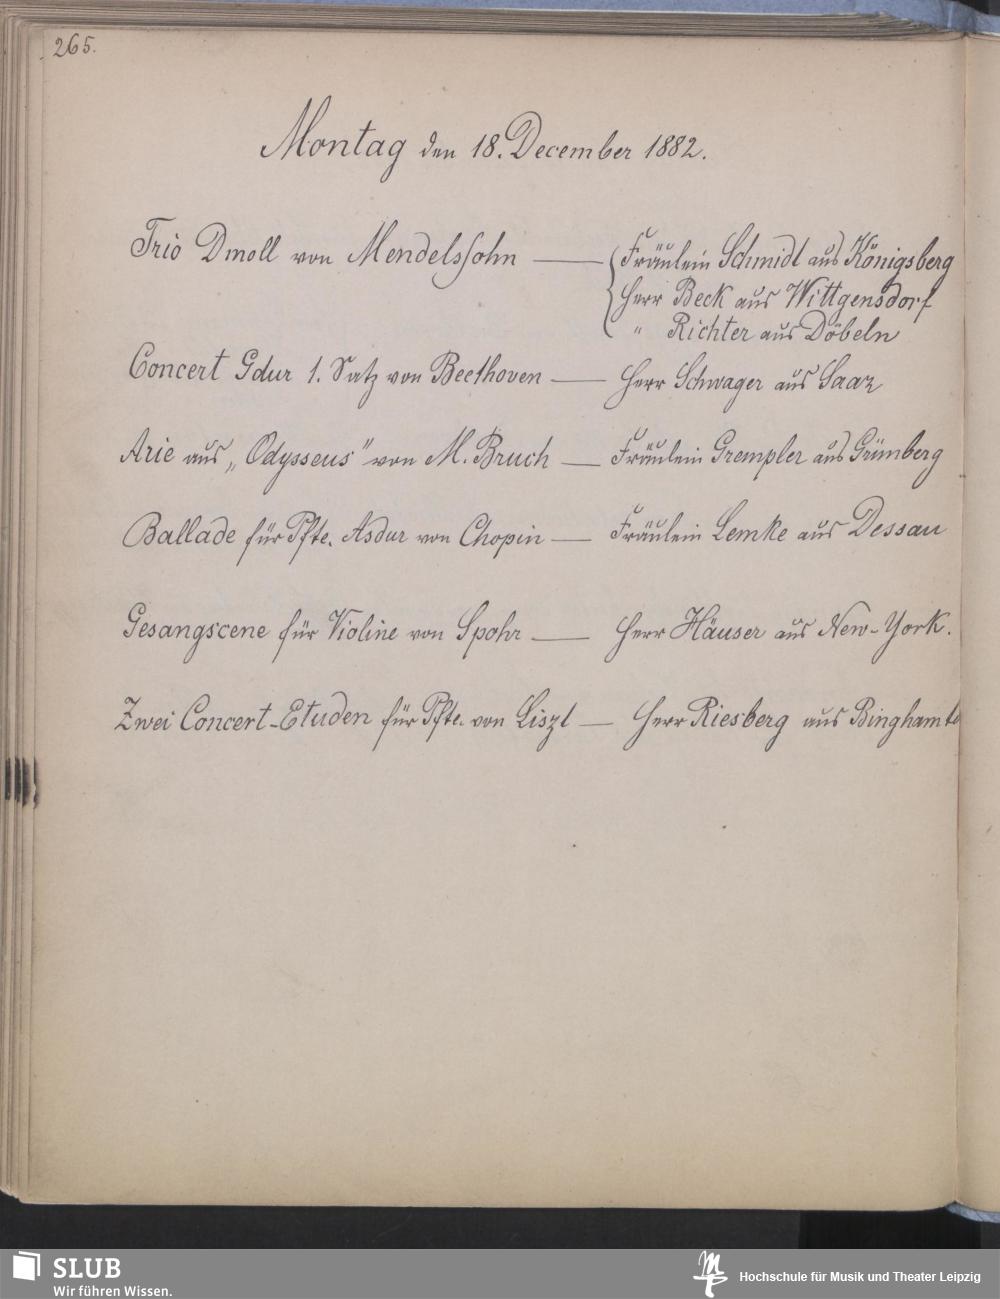 265.
Montag den 18. December 1882.
Trio Dmoll von Mendelssohn — Fräulein Schmidt aus Königsberg
Herr Beck aus Wittgensdorf
" Richter aus Döbeln
Concert Gdur 1. Satz von Beethoven — Herr Schwager aus Saaz
Arie aus „Odysseus" von M. Bruch — Fräulein Grempler aus Grünberg
Ballade für Pfte. Asdur von Chopin — Fräulein Lemke aus Dessau
Gesangscene für Violine von Spohr — Herr Häuser aus New-York.
Zwei Concert-Etuden für Pfte. von Liszt — Herr Riesberg aus Binghamto
SLUB
Wir führen Wissen.
Hochschule für Musik und Theater Leipzig